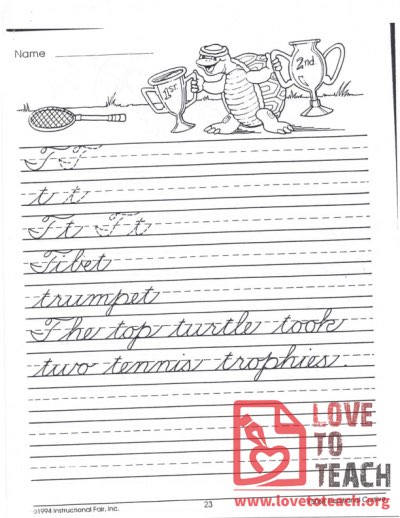 Name
1st.
2nd
T T
t t
T t T t
Tibet
trumpet
The top turtle took
two tennis trophies.
LOVE
TO
TEACH
©1994 Instructional Fair, Inc.
23
www.lovetoteach.org